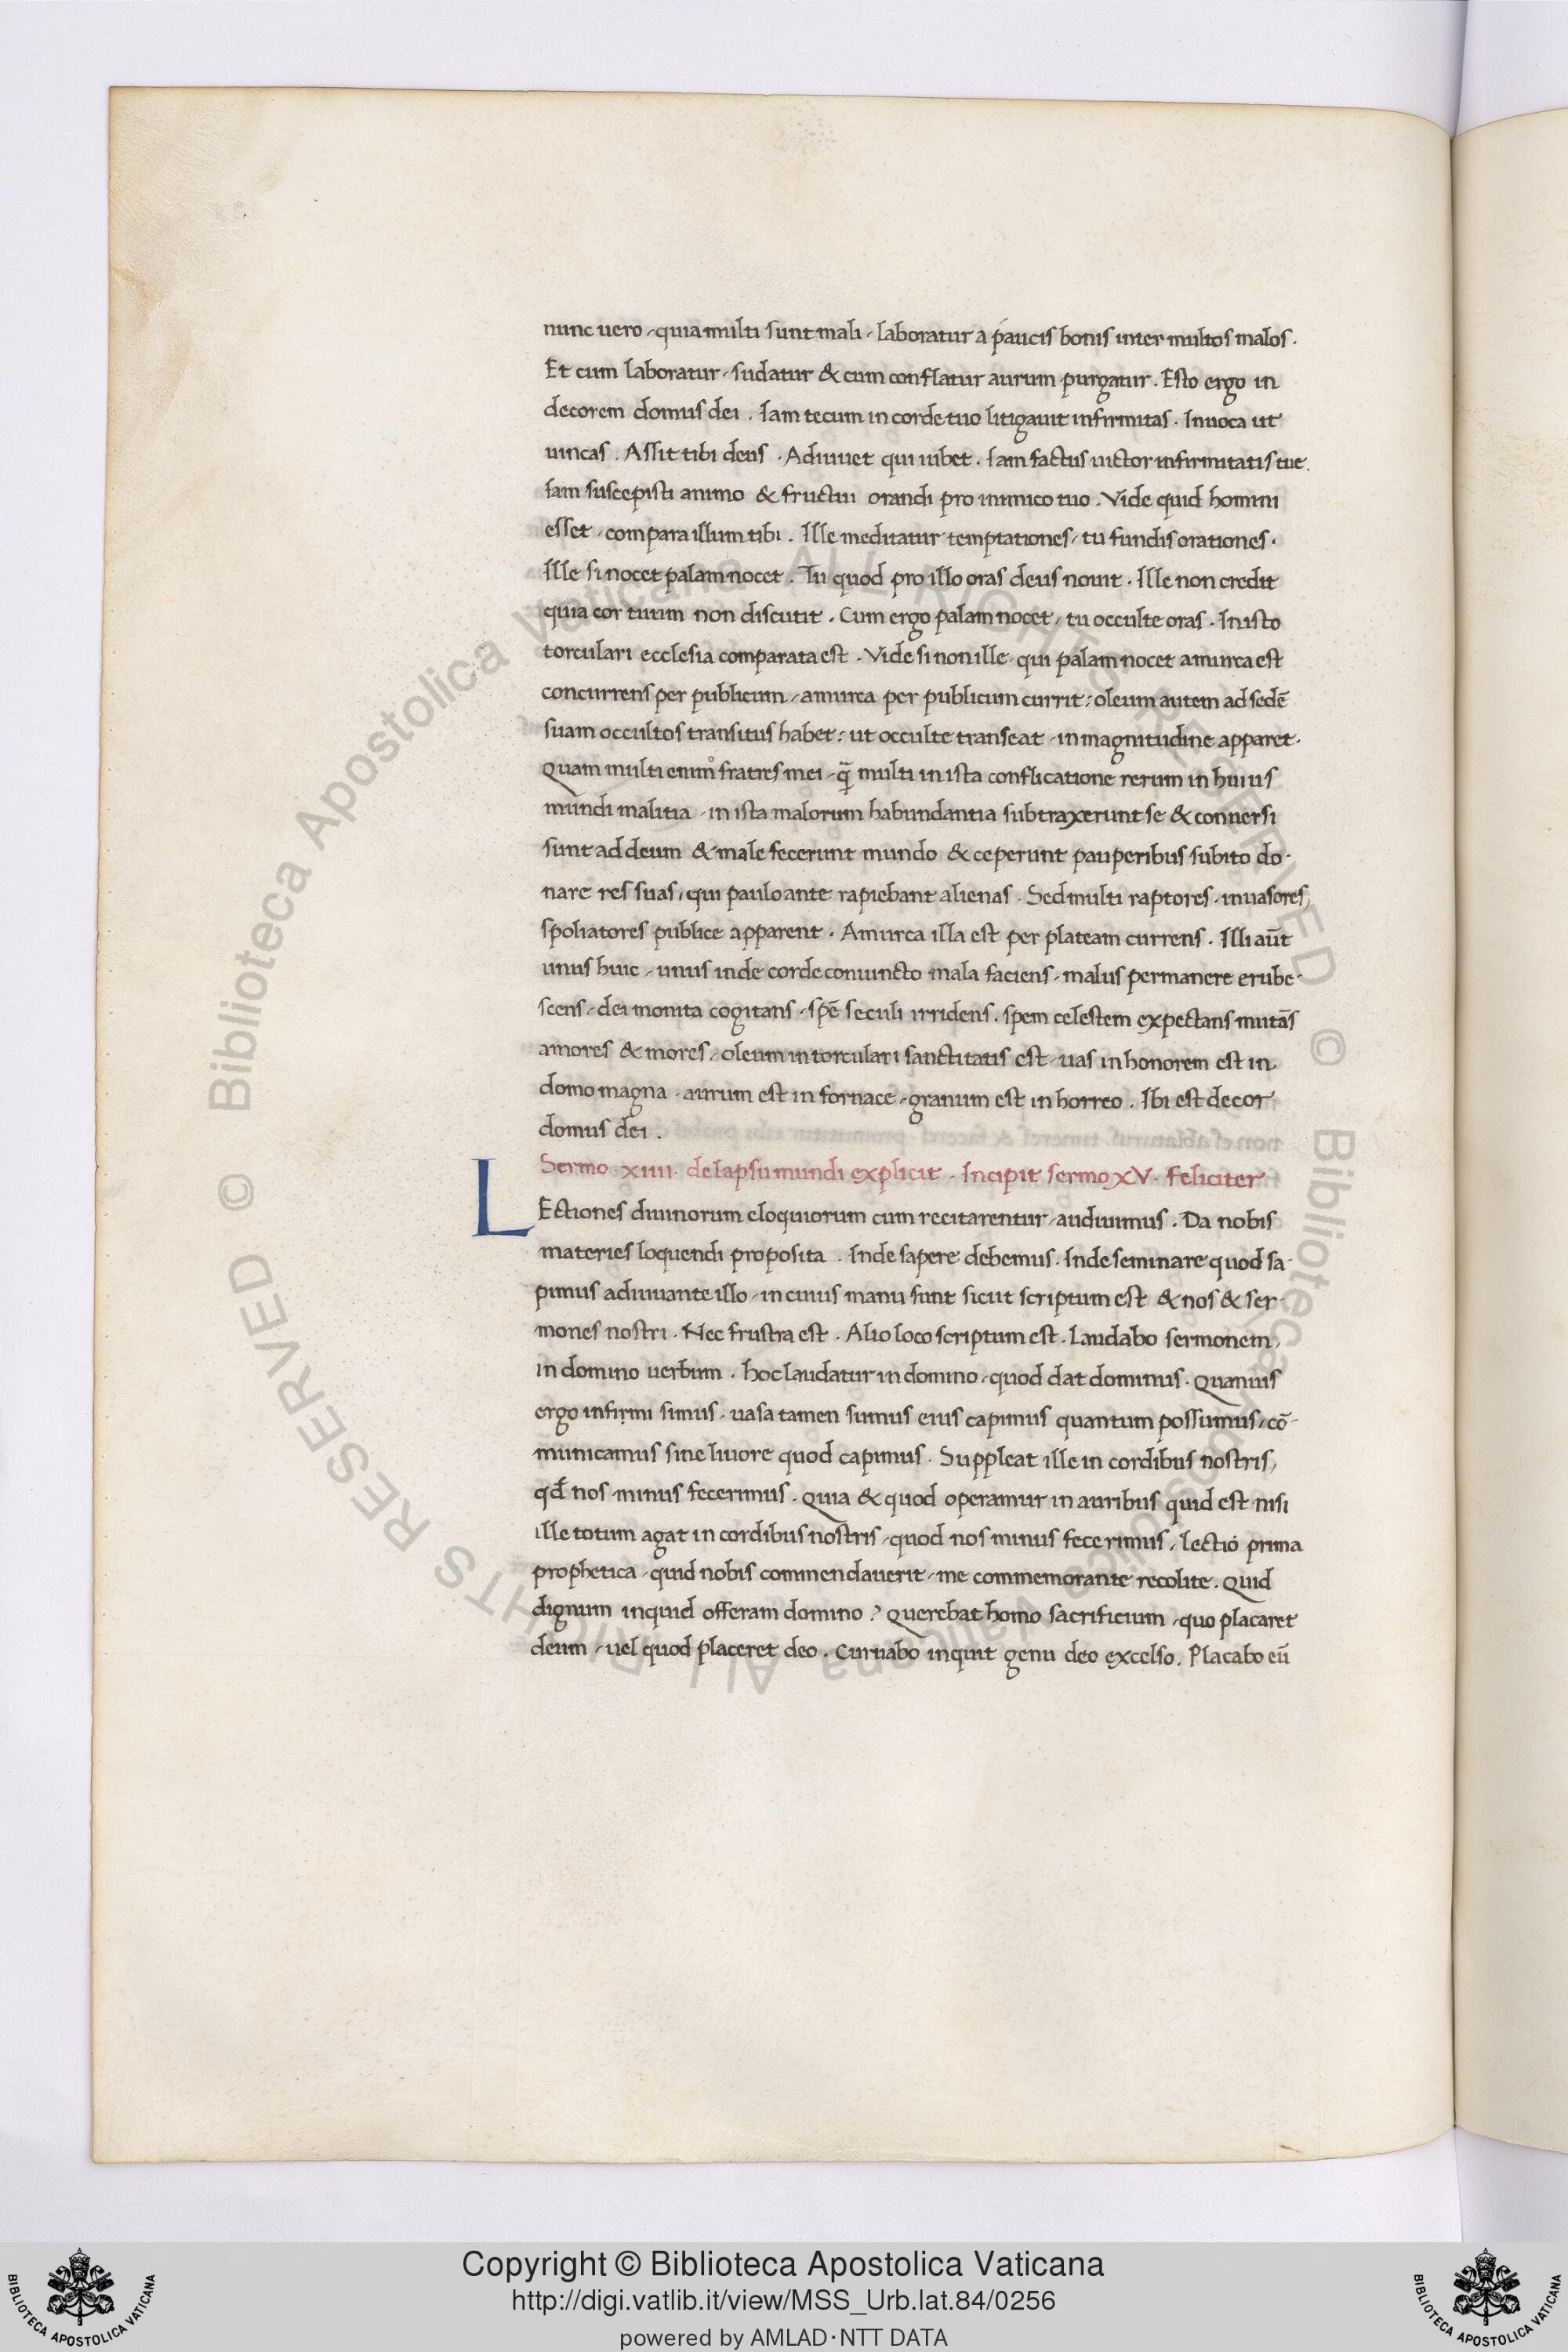 nunc uero, quia multi sunt mali, laboratur a paucis bonis inter multos malos.
Et cum laboratur, sudatur & cum conflatur aurum purgatur. Esto ergo in
decorem domus dei. Iam tecum in corde tuo litigauit infirmitas. Inuoca ut
uincas. Assit tibi deus. Adiuuet qui iubet. Iam factus uictor infirmitatis tue.
Iam suscepisti animo & fructui orandi pro inimico tuo. Vide quid homini
esset, compara illum tibi. Ille meditatur temptationes, tu fundis orationes.
Ille si nocet palam nocet. Tu quod pro illo oras deus nouit. Ille non credit
quia cor tuum non discutit. Cum ergo palam nocet, tu occulte oras. In isto
torculari ecclesia comparata est. Vide si non ille, qui palam nocet amurca est
concurrens per publicum, amurca per publicum currit: oleum autem ad sedē
suam occultos transitus habet: ut occulte transeat, in magnitudine apparet.
Quam multi enim fratres mei, q̄ multi in ista conflicatione rerum in huius
mundi malitia, in ista malorum habundantia subtraxerunt se & conuersi
sunt ad deum & male fecerunt mundo & ceperunt pauperibus subito do-
nare res suas, qui paulo ante rapiebant alienas. Sed multi raptores, inuasores,
spoliatores publice apparent. Amurca illa est per plateam currens. Illi aūt
unus huic, unus inde corde coniuncto mala faciens, malus permanere erube-
scens, dei monita cogitans, spē seculi irridens, spem celestem expectans mutās
amores & mores, oleum in torculari sanctitatis est, uas in honorem est in
domo magna, aurum est in fornace, granum est in horreo. Ibi est decor
domus dei.
Sermo .xiiii. de lapsu mundi explicit. Incipit sermo XV. feliciter
LEctiones diuinorum eloquiorum cum recitarentur, audiuimus. Da nobis
materies loquendi proposita. Inde sapere debemus. Inde seminare quod sa-
pimus adiuuante illo, in cuius manu sunt sicut scriptum est & nos & ser-
mones nostri. Nec frustra est. Alio loco scriptum est. Laudabo sermonem,
in domino uerbum. hoc laudatur in domino, quod dat dominus. Quamuis
ergo infirmi simus, uasa tamen sumus eius capimus quantum possumus, cō-
municamus sine liuore quod capimus. Suppleat ille in cordibus nostris,
qđ nos minus fecerimus. Quia & quod operamur in auribus quid est nisi
ille totum agat in cordibus nostris, quod nos minus fecerimus, lectio prima
prophetica, quid nobis commendauerit, me commemorante recolite. Quid
dignum inquid offeram domino? Querebat homo sacrificium, quo placaret
deum, uel quod placeret deo. Curuabo inquit genu deo excelso. Placabo eū
© Biblioteca Apostolica Vaticana ALL RIGHTS RESERVED © Biblioteca Apostolica Vaticana ALL RIGHTS RESERVED
Copyright © Biblioteca Apostolica Vaticana
http://digi.vatlib.it/view/MSS_Urb.lat.84/0256
powered by AMLAD·NTT DATA
BIBLIOTECA APOSTOLICA VATICANA
BIBLIOTECA APOSTOLICA VATICANA